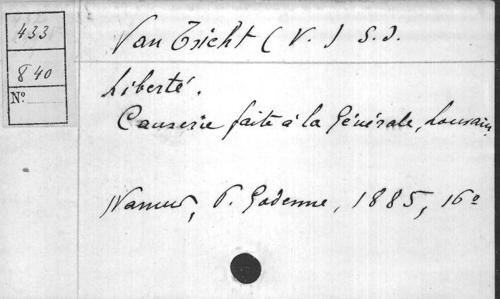 433
840
N°
Van Tricht (V.) S.J.
Liberté.
Causerie faite à la Générale, Louvain,
Namur, P. Godenne, 1885, 16°